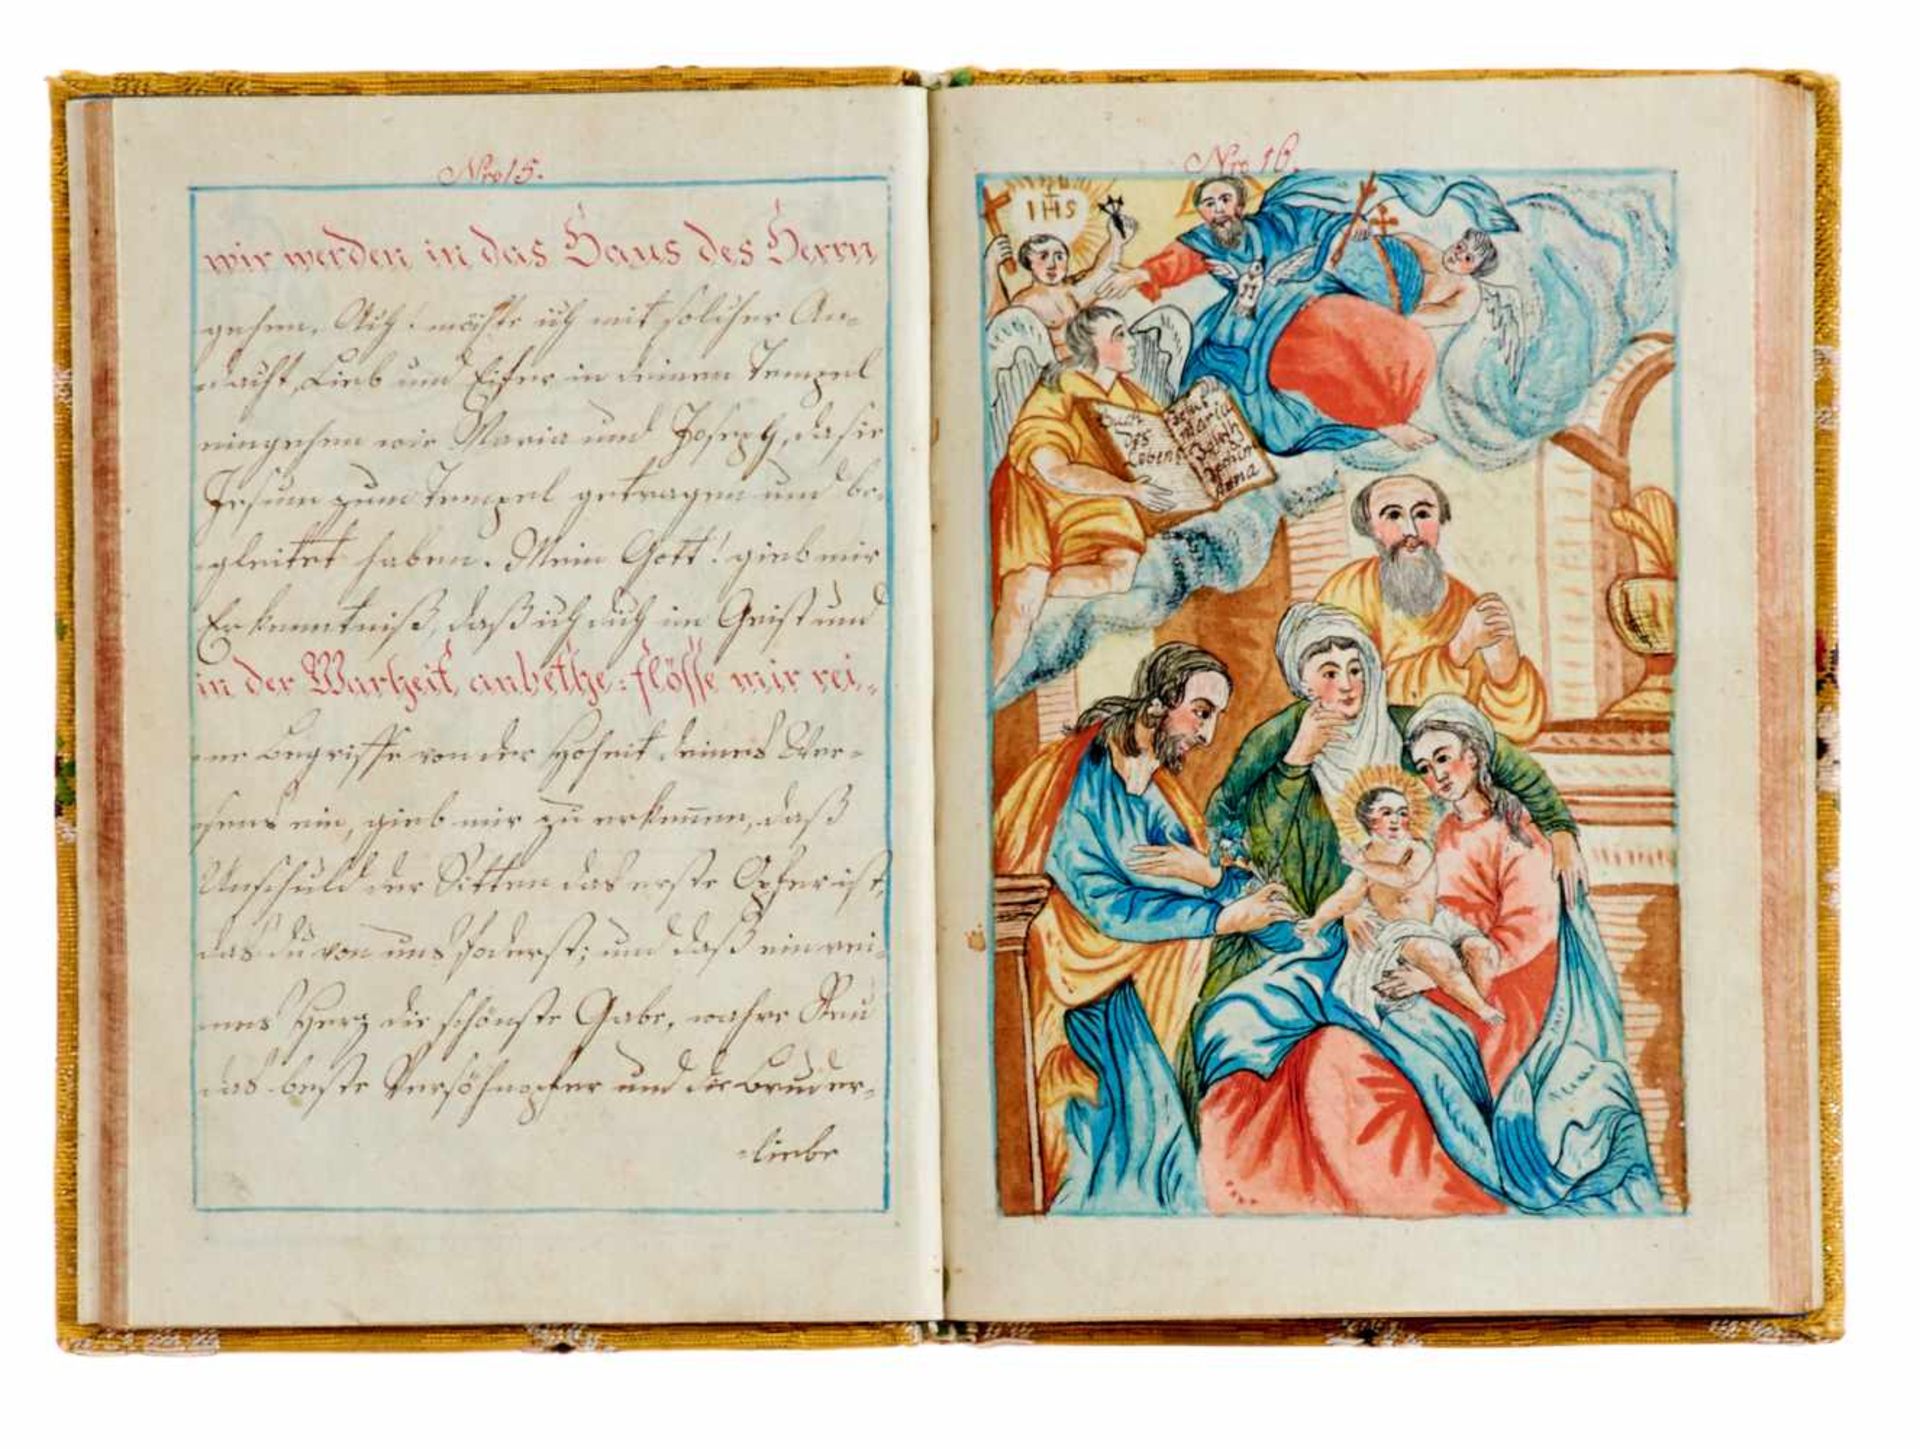 Nro 15.
wir werden in das Haus des Herrn
gehen. Ach! möchte ich mit solcher An-
dacht, Lieb und Eifer in deinen Tempel
eingehen wie Maria und Joseph, da sie
Jesum zum Tempel getragen und be-
gleitet haben. Mein Gott! gieb mir
Erkenntniß, daß ich dich im Geist und
in der Warheit anbethe: flösse mir rei-
ne Begriffe von der Hoheit deines We-
sens ein, gieb mir zu erkeñen, daß
Unschuld der Sitten das erste Opfer ist,
das du von uns foderst; und daß ein rei-
nes Herz die schönste Gabe, wahre Reu
das beste Versöhnopfer und die Bruder-
-liebe
Nro 16.
IHS
Buch
des
Lebens
Jesus
Maria
Joseph
Joachim
Anna